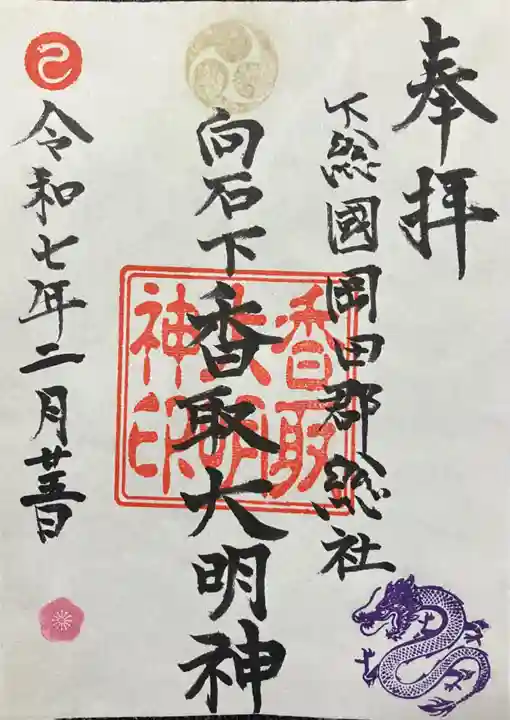 奉拝
下総國岡田郡総社
向石下香取大明神
香取大明神印
令和七年二月廿五日
巳